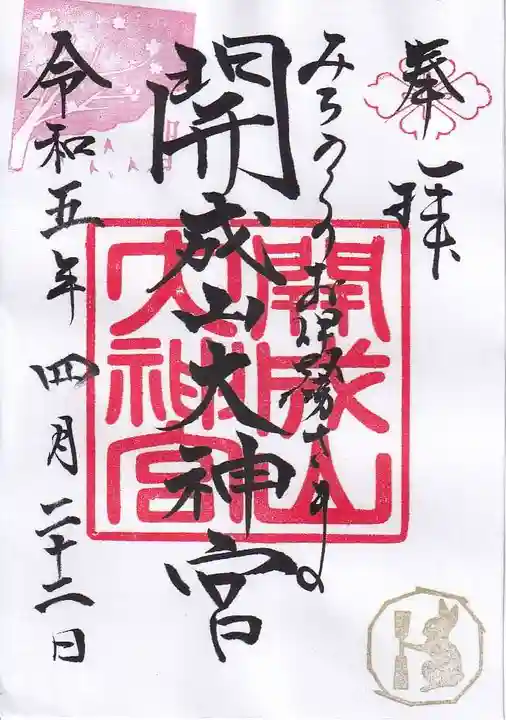 奉拝
みちのくのお伊勢さまの
開成山大神宮
開成山
大神宮
令和五年四月二十二日